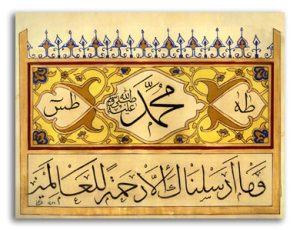 طه محمد ﷺ طس
وما أرسلناك إلا رحمة للعالمين